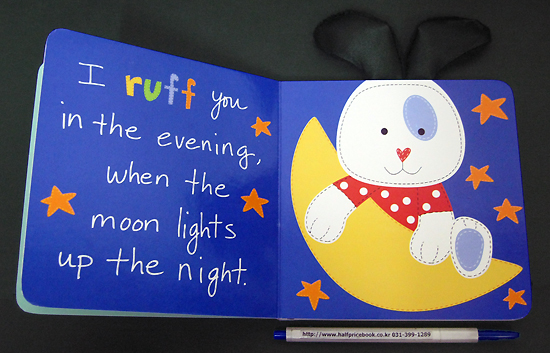 I ruff you
in the evening,
when the
moon lights
up the night.
http://www.halfpricebook.co.kr 031-399-1289